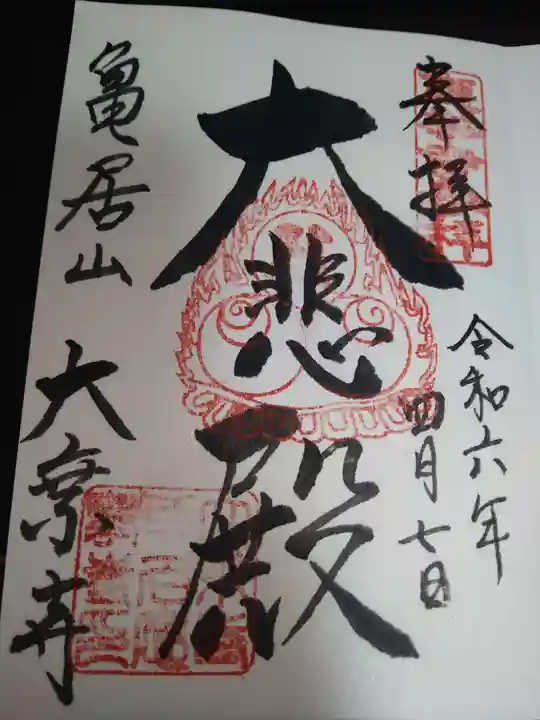 奉拝
令和六年
四月七日
大悲殿
亀居山
大寮寺